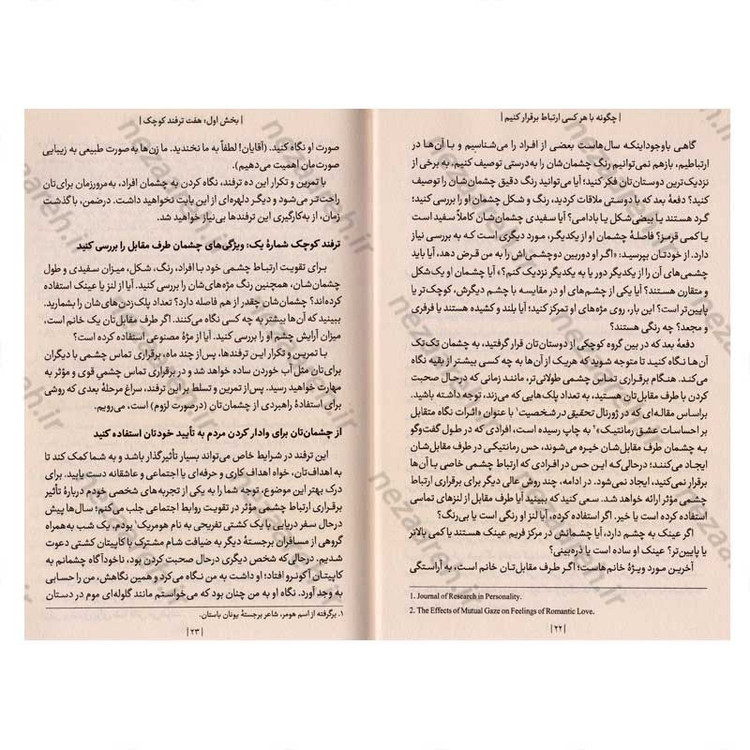 | چگونه با هر کسی ارتباط برقرار کنیم |
گاهی باوجوداینکه سال‌هاست بعضی از افراد را می‌شناسیم و بـا آن‌ها در
ارتباطیم، بازهم نمی‌توانیم رنگ چشمان‌شان را به‌درستی توصیف کنیم، به برخی از
نزدیک‌ترین دوستان‌تان فکر کنید؛ آیا می‌توانید رنگ دقیق چشمان‌شان را توصیف
کنید؟ دفعهٔ بعد که با دوستی ملاقات کردید، رنگ و شکل چشمان او را بررسی کنید؛
گرد هستند یا بیضی‌شکل یا بادامی؟ آیا سفیدی چشمان‌شان کاملاً سفید است
یا کمی قرمز؟ فاصلهٔ چشمان او از یکدیگر، مورد دیگری است که به بررسی نیاز
دارد. از خودتان بپرسید: «اگر او دوربین دوچشمی‌اش را به من قرض دهد، آیا باید
چشمی‌های آن را از یکدیگر دور یا به یکدیگر نزدیک کنم؟» آیا چشمان او یک‌شکل
و متقارن هستند؟ آیا یکی از چشم‌های او در مقایسه با چشم دیگرش، کوچک‌تر یا
پایین‌تر است؟ این بار، روی مژه‌های او تمرکز کنید؛ آیا بلند و کشیده هستند یا فرفری
و مجعد؟ چه رنگی هستند؟
دفعهٔ بعد که در بین گروه کوچکی از دوستان‌تان قرار گرفتید، به چشمان تک‌تک
آن‌ها نگاه کنید تا متوجه شوید که هریک از آن‌ها به چه کسی بیشتر از بقیه نگاه
می‌کند. هنگام برقراری تماس چشمی طولانی‌تر، مانند زمانی که درحال صحبت
کردن با طرف مقابل‌تان هستید، به تعداد پلک‌هایی که می‌زند، توجه داشته باشید.
براساس مقاله‌ای که در ژورنال تحقیق در شخصیت۱ با عنوان «اثرات نگاه متقابل
بر احساسات عشق رمانتیک»۲ به چاپ رسیده است، افرادی که در طول گفت‌وگو
به چشمان طرف مقابل‌شان خیره می‌شوند، حس رمانتیکی در طرف مقابل‌شان
ایجاد می‌کنند؛ درحالی‌که این حس در افرادی که ارتباط چشمی خاصی با آن‌ها
برقرار نمی‌کنید، ایجاد نمی‌شود. در ادامه، چند روش عالی دیگر برای برقراری ارتباط
چشمی مؤثر ارائه خواهد شد. سعی کنید که ببینید آیا طرف مقابل از لنزهای تماسی
استفاده کرده است یا خیر. اگر استفاده کرده، آیا لنز او رنگی است یا بی‌رنگ؟
اگر عینک به چشم دارد، آیا چشمانش در مرکز فریم عینک هستند یا کمی بالاتر
یا پایین‌تر؟ عینک او ساده است یا ذره‌بینی؟
آخرین مورد ویژهٔ خانم‌هاست؛ اگر طرف مقابل‌تان خانم است، به آراستگی
1. Journal of Research in Personality.
2. The Effects of Mutual Gaze on Feelings of Romantic Love.
| ۲۲ |
| بخش اول: هفت ترفند کوچک |
صورت او نگاه کنید. (آقایان! لطفاً به ما نخندید. ما زن‌ها به‌صورت طبیعی به زیبایی
صورت‌مان اهمیت می‌دهیم).
با تمرین و تکرار این ده ترفند، نگاه کردن به چشمان افراد، به‌مرورزمان برای‌تان
راحت‌تر می‌شود و دیگر دلهره‌ای از این بابت نخواهید داشت. درضمن، با گذشت
زمان، از به‌کارگیری این ترفندها بی‌نیاز خواهید شد.
ترفند کوچک شمارهٔ یک: ویژگی‌های چشمان طرف مقابل را بررسی کنید
برای تقویت ارتباط چشمی خود با افراد، رنگ، شکل، میزان سفیدی و طول
چشمان‌شان، همچنین رنگ مژه‌های‌شان را بررسی کنید. آیا از لنز یا عینک استفاده
کرده‌اند؟ چشمان‌شان چقدر از هم فاصله دارد؟ تعداد پلک‌زدن‌های‌شان را بشمارید.
ببینید که آن‌ها بیشتر به چه کسی نگاه می‌کنند. اگر طرف مقابل‌تان یک خانم است،
میزان آرایش چشم او را بررسی کنید. آیا از مژهٔ مصنوعی استفاده کرده است؟
با تمرین و تکرار این ترفندها، پس از چند ماه، برقراری تماس چشمی با دیگران
برای‌تان مثل آب خوردن ساده خواهد شد و در برقراری تماس چشمی قوی و مؤثر به
مهارت خواهید رسید. پس از تمرین و تسلط بر این ترفند، سراغ مرحلهٔ بعدی که روشی
برای استفادهٔ راهبردی از چشمان‌تان (درصورت لزوم) است، می‌رویم.
از چشمان‌تان برای وادار کردن مردم به تأیید خودتان استفاده کنید
این ترفند در شرایط خاص می‌تواند بسیار تأثیرگذار باشد و به شما کمک کند تا
به اهداف‌تان، خواه اهداف کاری و حرفه‌ای یا اجتماعی و عاشقانه دست یابید. برای
درک بهتر این موضوع، توجه شما را به یکی از تجربه‌های شخصی خودم دربارهٔ تأثیر
برقراری ارتباط چشمی مؤثر در تقویت روابط اجتماعی جلب می‌کنم؛ سال‌ها پیش
درحال سفر دریایی با یک کشتی تفریحی به نام هومریک۱ بودم. یک شب به‌همراه
گروهی از مسافران برجستهٔ دیگر به ضیافت شام مشترک با کاپیتان کشتی دعوت
شدیم. درحالی‌که شخص دیگری درحال صحبت کردن بود، ناخودآگاه چشمانم به
کاپیتان آکونرو افتاد؛ او داشت به من نگاه می‌کرد و همین نگاهش، من را حسابی
به وجد آورد. نگاه او به من چنان بود که می‌خواستم مانند گلوله‌ای موم در دستان
۱. برگرفته از اسم هومر، شاعر برجستهٔ یونان باستان.
| ۲۳ |
nezaareh.ir